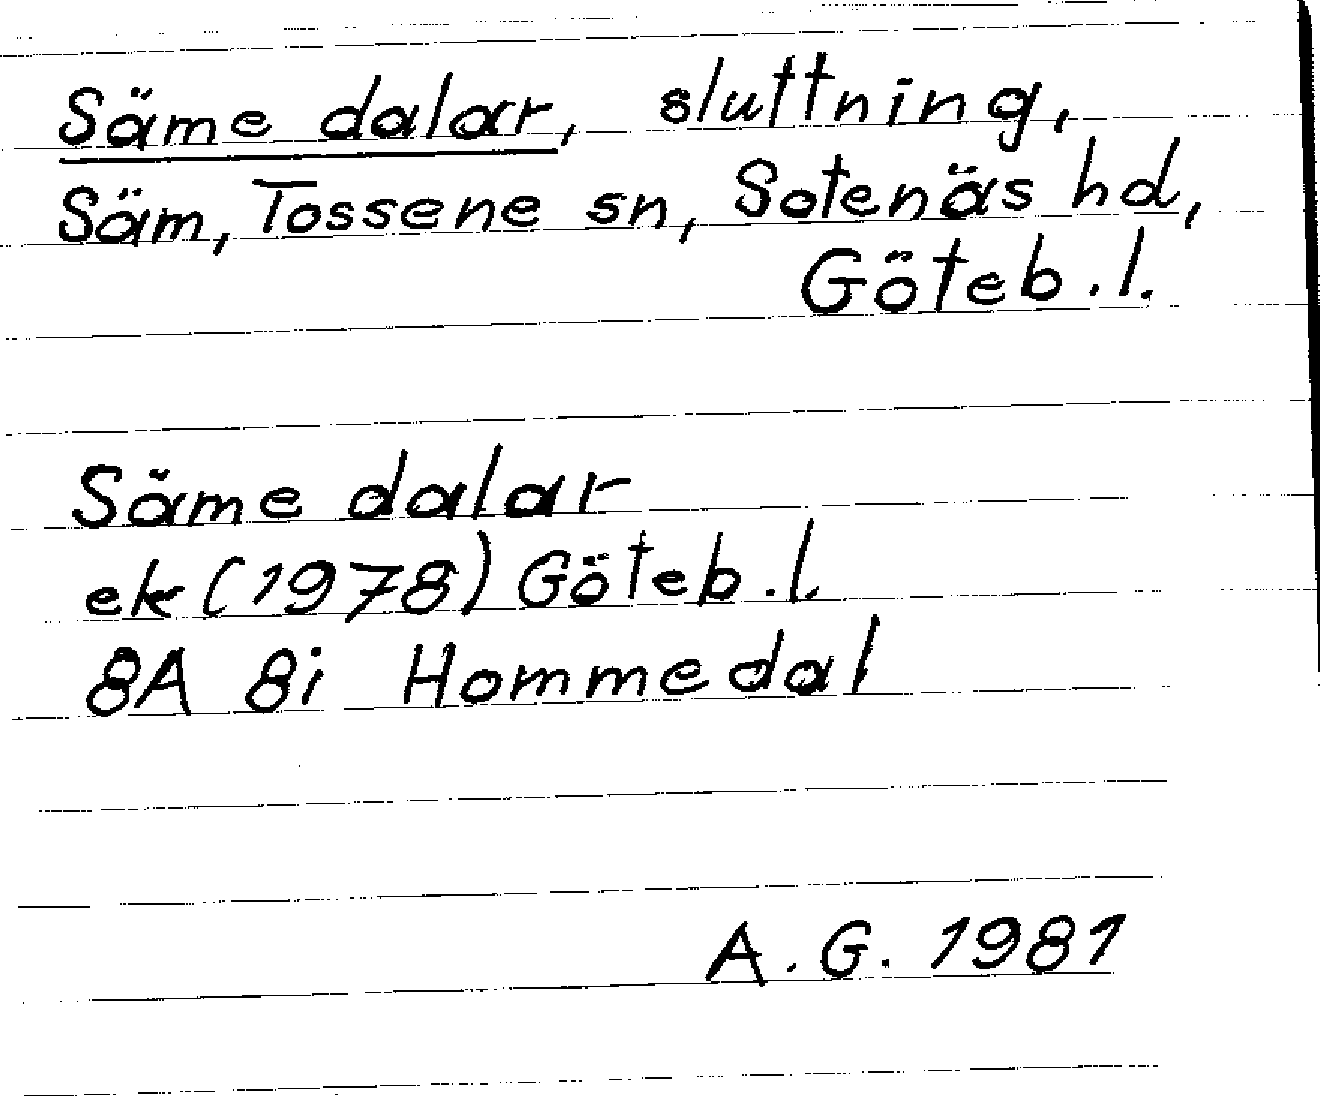 Säme dalar, sluttning,
Säm, Tossene sn, Sotenäs hd,
Göteb.l.
Säme dalar
ek (1978) Göteb.l.
8A 8i Hommedal
A.G. 1981